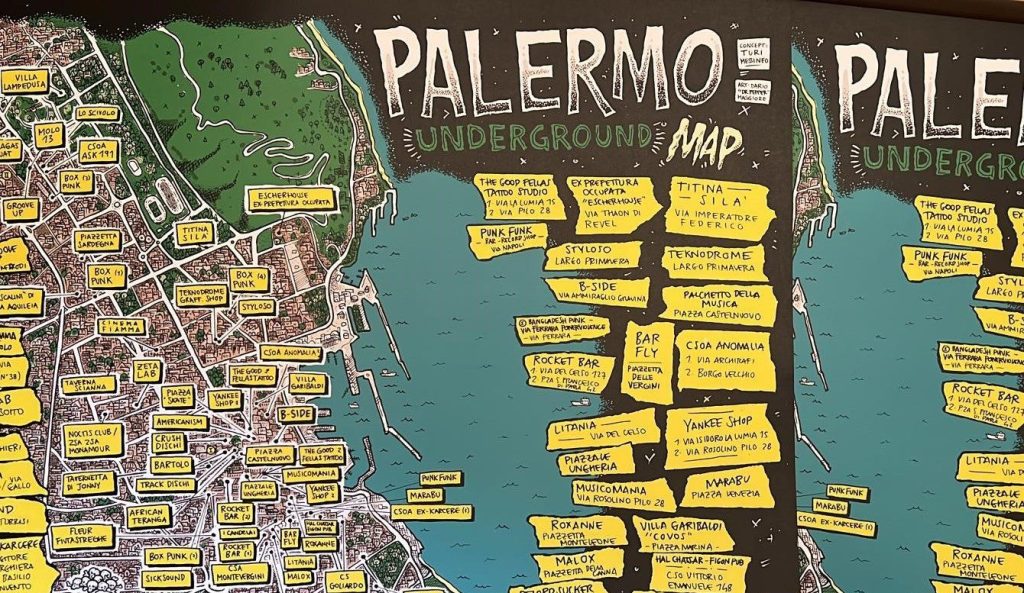 PALERMO
UNDERGROUND
MAP
CONCEPT:
TURI
MESSINEO
ART: DARIO
"DR PEPPER"
MAGGIORE
VILLA
LAMPEDUSA
LO SCIVOLO
MOLO
13
CSOA
ASK 191
BOX
PUNK
GROOVE
UP
ESCHERHOUSE
EX PREFETTURA OCCUPATA
PIAZZETTA
SARDEGNA
TITINA
SILA'
BOX (3)
PUNK
BOX (4)
PUNK
TEKNODROME
GRAFF. SHOP
STYLOSO
AQUILEIA
CINEMA
FIAMMA
CSOA ANOMALIA
ZETA
LAB
THE GOOD 2
FELLAS TATTOO
VILLA
GARIBALDI
TAVERNA
SCIANNA
PIAZZA
SKATE
YANKEE
SHOP
B-SIDE
AMERICANISM
NOCTIS CLUB /
ZSA ZSA
MONAMOUR
CRUSH
DISCHI
BARTOLO
PIAZZA
CASTELNUOVO
THE GOOD 2
FELLAS TATTOO
TAVERNETTA
DI JONNY
TRACK DISCHI
PIAZZALE
UNGHERIA
MUSICOMANIA
YANKEE
SHOP 2
PUNK FUNK
MARABU
CSOA EX-KARCERE (1)
AFRICAN
TERANGA
ROCKET
BAR (2)
I CANDELAI
BAR
FLY
HAL CHATSAR
FIGON PUB
ROXANNE
FLEUR
FINTASTREGHE
BOX PUNK
ROCKET
BAR (1)
LITANIA
MALOX
SICKSOUND
CSA
MONTEVERGINI
CS
GOLIARDO
THE GOOD FELLAS
TATTOO STUDIO
1 VIA LA LUMIA 75
2 VIA PILO 28
EX PREFETTURA
OCCUPATA
"ESCHERHOUSE"
VIA THAON DI
REVEL
TITINA
SILA'
VIA IMPERATORE
FEDERICO
PUNK FUNK
- BAR - RECORD SHOP -
VIA NAPOLI
STYLOSO
LARGO PRIMAVERA
TEKNODROME
LARGO PRIMAVERA
B-SIDE
VIA AMMIRAGLIO GRAVINA
PALCHETTO DELLA
MUSICA
PIAZZA CASTELNUOVO
BANGLADESH PUNK -
VIA FERRARA POWERVIOLENCE
- VIA FERRARA -
BAR
FLY
PIAZZETTA
DELLE
VERGINI
CSOA ANOMALIA
1. VIA ARCHIRAFI
2. BORGO VECCHIO
ROCKET BAR
1 VIA DEL CELSO 127
2 P.ZA S. FRANCESCO
DI PAOLA
LITANIA
VIA DEL CELSO
YANKEE SHOP
1 VIA ISIDORO LA LUMIA 75
2 VIA ROSOLINO PILO 28
PIAZZALE
UNGHERIA
MUSICOMANIA
VIA ROSOLINO PILO 28
MARABU
PIAZZA VENEZIA
ROXANNE
PIAZZETTA
MONTELEONE
VILLA GARIBALDI
"COVOS"
- PIAZZA MARINA -
MALOX
PIAZZETTA DELLA
CANNA
HAL CHATSAR - FIGON PUB
CSO VITTORIO
EMANUELE 148
PALE
UNDERGRO
THE GOOD FELLAS
TATTOO STUDIO
1 VIA LA LUMIA 75
2 VIA PILO 28
PUNK FUNK
- BAR - RECORD SHOP -
VIA NAPOLI
BANGLADESH PUNK -
VIA FERRARA POWERVIOLENCE
- VIA FERRARA
ROCKET BAR
1 VIA DEL CELSO 127
2 P.ZA S. FRANCESCO
LITANIA
PIAZZALE
UNGHERIA
PUNK FUNK
MARABU
CSOA EX-KARCERE (1)
ROXANNE
PIAZZETTA
MONTELEONE
MALOX